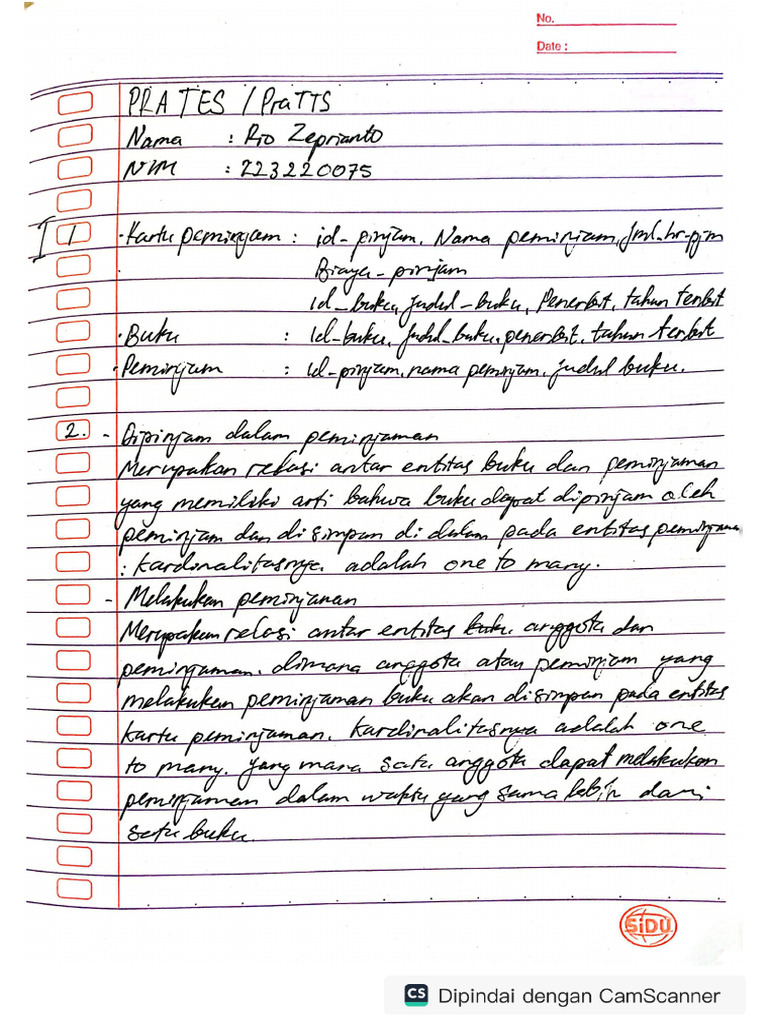 No.
Date :
PRATES / PraTTS
Nama : Rio Zeprianto
NIM : 223220075
I 1 . Kartu peminjam : id-pinjam, Nama peminjam, Jml-hr-pjm
Biaya-pinjam
id_buku, judul-buku, Penerbit, tahun terbit
. Buku : id-buku, judul_buku, penerbit, tahun terbit
. Peminjam : id-pinjam, nama peminjam, judul buku.
2. - Dipinjam dalam peminjaman
Merupakan relasi antar entitas buku dan peminjaman
yang memiliki arti bahwa buku dapat dipinjam oleh
peminjam dan disimpan di dalam pada entitas peminjaman
: kardinalitasnya adalah one to many.
- Melakukan peminjaman
Merupakan relasi antar entitas buku anggota dan
peminjaman. dimana anggota atau peminjam yang
melakukan peminjaman buku akan disimpan pada entitas
kartu peminjaman. kardinalitasnya adalah one
to many. yang mana satu anggota dapat melakukan
peminjaman dalam waktu yang sama lebih dari
satu buku.
SiDU
CS Dipindai dengan CamScanner